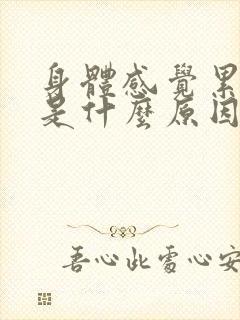 身體感覺累
是什麼原因
吾心此處心安